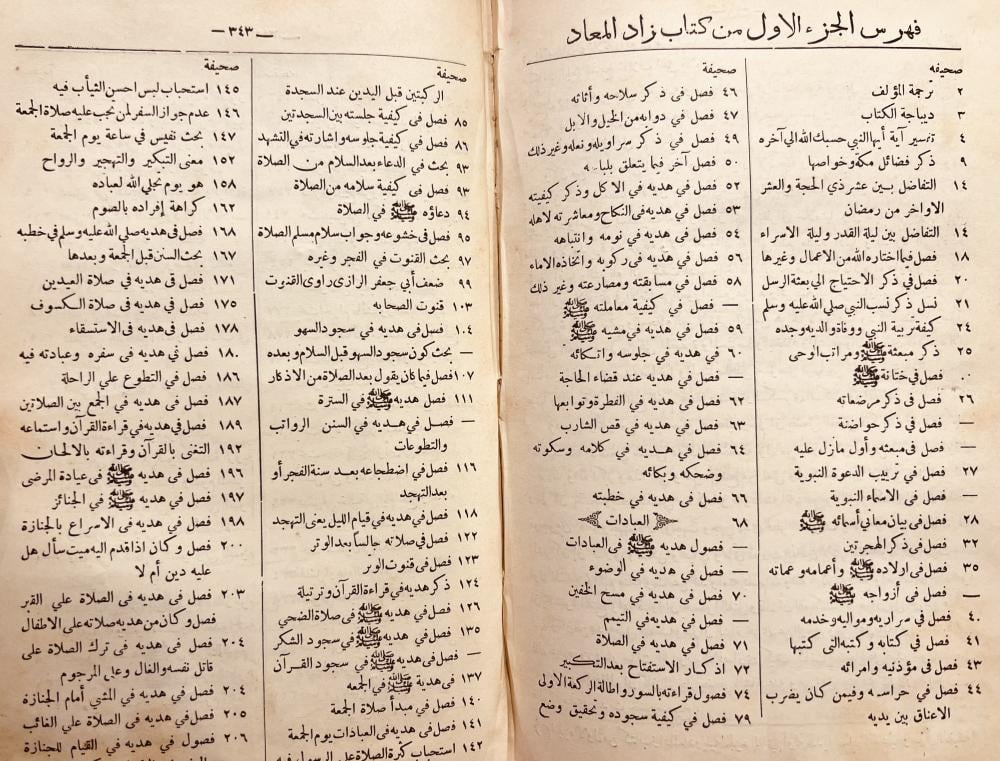 فهرس الجزء الاول من كتاب زاد المعاد
صحيفه
٢ ترجمة المؤلف
٣ ديباجة الكتاب
٤ تفسير آية أيها النبي حسبك الله الى آخره
٩ ذكر فضائل مكة وخواصها
١٤ التفاضل بين عشر ذي الحجة والعشر
الاواخر من رمضان
١٤ التفاضل بين ليلة القدر وليلة الاسراء
١٨ فصل فيما اختاره الله من الاعمال وغيرها
٢٠ فصل في ذكر الاحتياج الي بعثة الرسل
٢١ نسل ذكر نسب النبي صلى الله عليه وسلم
٢٤ كيفة تربية النبي ووفاة والديه وجده
٢٥ ذكر مبعثة ﷺ ومراتب الوحى
٠٠ فصل في ختانة ﷺ
٢٦ فصل في ذكر مرضعاته
— فصل في ذكر حواضنة
— فصل في مبعثه وأول مانزل عليه
٢٧ فصل في ترييب الدعوة النبوية
— فصل في الاسماء النبوية
٢٨ فصل فى بيان معاني أسمائه ﷺ
٣٢ فصل فى ذكر الهجرتين
٣٥ فصل فى اولاده ﷺ وأعمامه وعماته
— فصل في أزواجه ﷺ
٤٠ فصل في سراريه ومواليه وخدمه
٤١ فصل في كتابه وكتبه التى كتبها
٤٣ فصل فى مؤذنيه وامرائه
٤٤ فصل في حراسه وفيمن كان يضرب
الاعناق بين يديه
صحيفة
٤٦ فصل فى ذكر سلاحه وأثاثه
٤٧ فصل في دوابه من الخيل والابل
٤٩ فصل في ذكر سراويله ونعله وغير ذلك
٥٠ فصل آخر فيما يتعلق بلباسه
٥٢ فصل في هديه في الاكل وذكر كيفيته
٥٣ فصل في هديه فى النكاح ومعاشرته لاهله
٥٤ فصل في هديه في نومه وانتباهه
٥٦ فصل في هديه فى ركوبه واتخاذه الاماء
٥٨ فصل في مسابقته ومصارعته وغير ذلك
— فصل في كيفية معاملته ﷺ
٥٩ فصل فى هديه في مشيه ﷺ
٦٠ فى هديه في جلوسه واتكائه
— فصل فى هديه عند قضاء الحاجة
٦٢ فصل في هديه في الفطرة وتوابعها
٦٣ فصل فى هديه في قص الشارب
٦٤ فصل فى هديه في كلامه وسكوته
وضحكه وبكائه
٦٦ فصل فى هديه في خطبته
٦٨ العبادات
— فصول هديه ﷺ فى العبادات
— فصل في هديه في الوضوء
٧٠ فصل فى هديه في مسح الخفين
— فصل في هديه في التيمم
٧١ فصل في هديه في الصلاة
٧٢ اذكار الاستفتاح بعد التكبير
٧٤ فصول قراءته بالسور واطالة الركعة الاولى
٧٩ فصل في كيفية سجوده وتحقيق وضع
— ٣٤٣ —
صحيفة
الركبتين قبل اليدين عند السجدة
٨٥ فصل فى كيفية جلسته بين السجدتين
٨٦ فصل في كيفية جلوسه واشارته في التشهد
٩٣ بحث في الدعاء بعد السلام من الصلاة
٩٣ فصل فى كيفية سلامه من الصلاة
٩٤ دعاؤه ﷺ في الصلاة
٩٥ فصل فى خشوعه وجواب سلام مسلم الصلاة
٩٧ بحث القنوت في الفجر وغره
٩٩ ضعف أبي جعفر الرازى راوى القنوت
١٠٣ قنوت الصحابه
١٠٤ فصل في هديه في سجود السهو
— بحث كون سجود السهو قبل السلام وبعده
١٠٧ فصل فيما كان يقول بعد الصلاة من الاذكار
١١١ فصل هديه ﷺ في السترة
— فصل في هديه في السنن الرواتب
والتطوعات
١١٦ فصل في اضطجاعه بعد سنة الفجر أو
بعد التهجد
١١٨ فصل في هديه في قيام الليل يعنى التهجد
١٢٢ فصل في صلاته جالسا بعد الوتر
١٢٣ فصل فى قنوت الوتر
١٢٤ ذكر هديه في قراءة القرآن وترتيلة
١٢٦ فصل في هديه ﷺ فى صلاة الضحي
١٣٥ فصل في هديه ﷺ في سجود الشكر
— فصل فى هديه ﷺ في سجود القرآن
١٣٧ فى هدية ﷺ في الجمعه
١٤٠ فصل في مبدأ صلاة الجمعة
١٤١ فصل في هديه فى العبادات يوم الجمعة
١٤٢ استحباب كثرة الصلاة على الرسول فيه
صحيفة
١٤٥ استحباب لبس احسن الثيأب فيه
١٤٦ عدم جواز السفر لمن تجب عليه صلاة الجمعة
١٤٧ بحث نفيس في ساعة يوم الجمعة
١٥٢ معنى التبكير والتهجير والرواح
١٥٨ هو يوم تجلي الله لعباده
١٦٢ كراهة إفراده بالصوم
١٦٨ فصل فى هديه صلي الله عليه وسلم في خطبه
١٦٧ بحث السنن قبل الجمعة وبعدها
١٧١ فصل فى هديه في صلاة العيدين
١٧٥ فصل في هديه فى صلاة الكسوف
١٧٨ فصل فى هديه فى الاستسقاء
١٨٠ فصل في هديه فى سفره وعبادته فيه
١٨٦ فصل في التطوع علي الراحلة
١٨٧ فصل في هديه في الجمع بين الصلاتين
١٨٩ فصل في هديه في قراءة القرآن واستماعه
١٩٢ التغنى بالقرآن وقراءته بالالحان
١٩٦ فصل في هديه ﷺ فى عيادة المرضى
١٩٧ فصل في هديه ﷺ في الجنائز
١٩٨ فصل في هديه في الاسراع بالجنازة
٢٠٠ فصل وكان اذا قدم اليه ميت سأل هل
عليه دين أم لا
٢٠٣ فصل فى هديه في الصلاة علي القبر
فصل وكان من هديه صلاته على الاطفال
٢٠٤ فصل فى هديه فى ترك الصلاة على
قاتل نفسه والغال وعلى المرجوم
٢٠٤ فصل في هديه في المشي أمام الجنازة
٢٠٥ فصل في هديه فى الصلاة علي الغائب
٢٠٦ فصول في هديه في القيام للجنازة